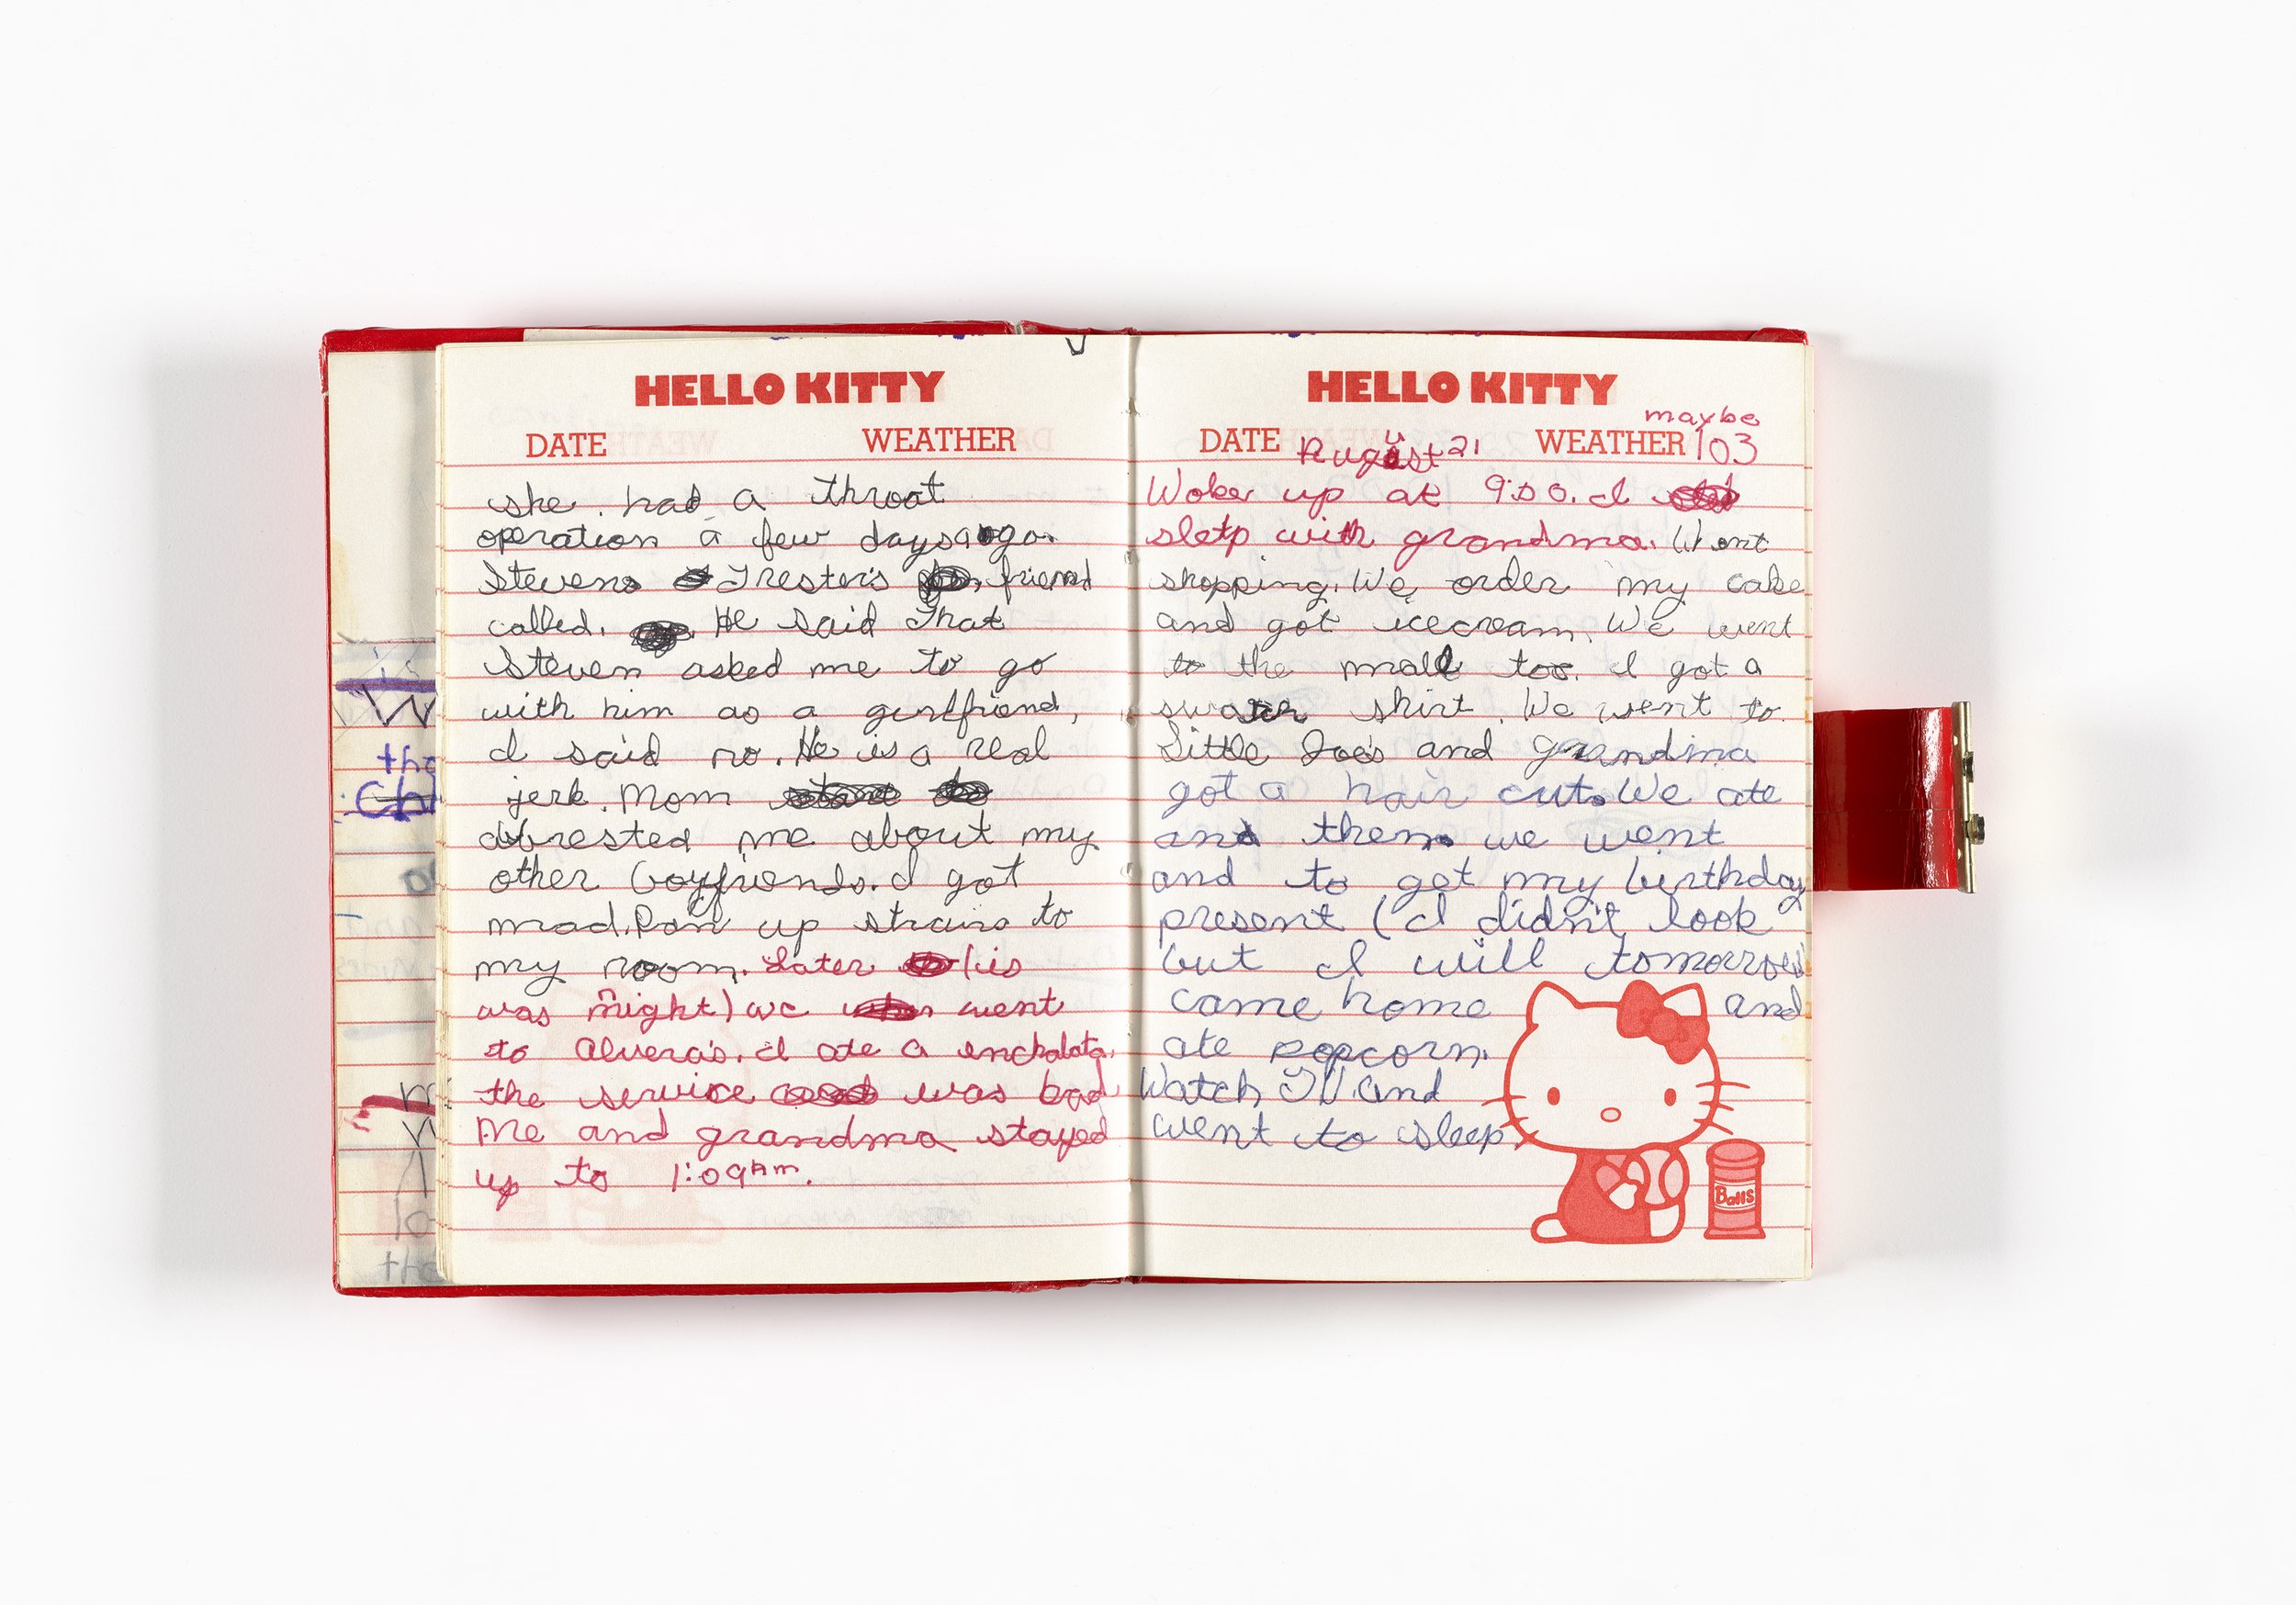 HELLO KITTY
DATE WEATHER
she had a throat
operation a few days ago.
Stevens Trester's friend
called. He said that
Steven asked me to go
with him as a girlfriend,
I said no. He is a real
jerk. Mom
abrested me about my
other boyfriends. I got
mad. Ran up strairs to
my room. Later (is
was night) we went
to Alvera's. I ate a enchalata.
the service was bad
Me and grandma stayed
up to 1:09 Am.
HELLO KITTY
maybe
DATE August 21 WEATHER 103
Woke up at 9:00. I
sleep with grandma. Went
shopping. We order my cake
and got icecream. We went
to the mall too. I got a
swater shirt. We went to
Little Joe's and grandma
got a hair cut. We ate
and then we went
and to get my birthday
present (I didn't look
but I will tomorrow)
came home and
ate popcorn.
Watch TV. And
went to sleep.
Balls